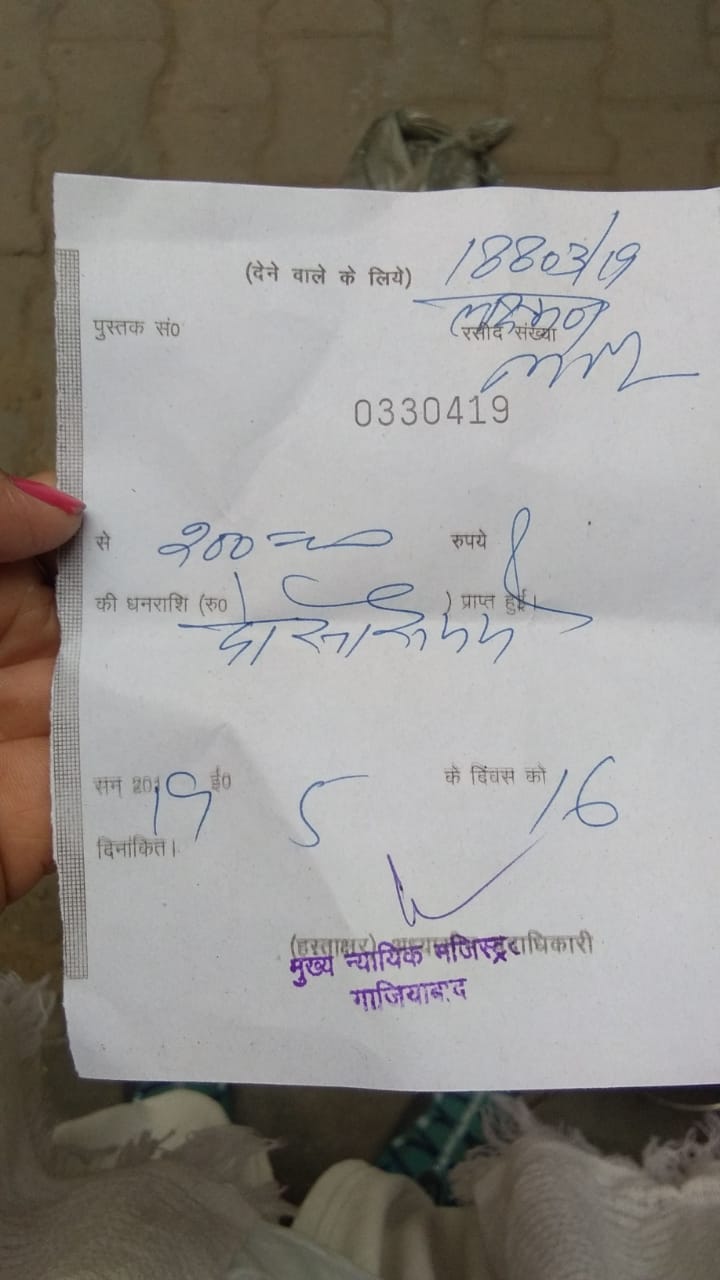 (देने वाले के लिये) 18803/19
पुस्तक सं0 लक्ष्मन
रसीद संख्या
0330419
से २००= रुपये
की धनराशि (रु0 ) प्राप्त हुई।
दो सौ रुपये
सन 2019 ई0 5 के दिवस को 16
दिनांकित।
(हस्ताक्षर) धिकारी
मुख्य न्यायिक मजिस्ट्रेट
गाजियाबाद